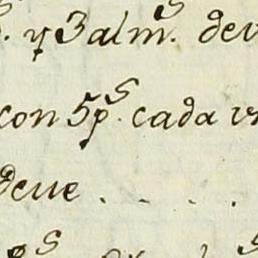 y 3 almˢ. deu
con 5 pˢ. cada v
deue . . . .